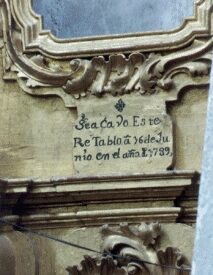 Sea Ca Vo Este
Re Tablo â 16 de Ju
nio en el año d 1789